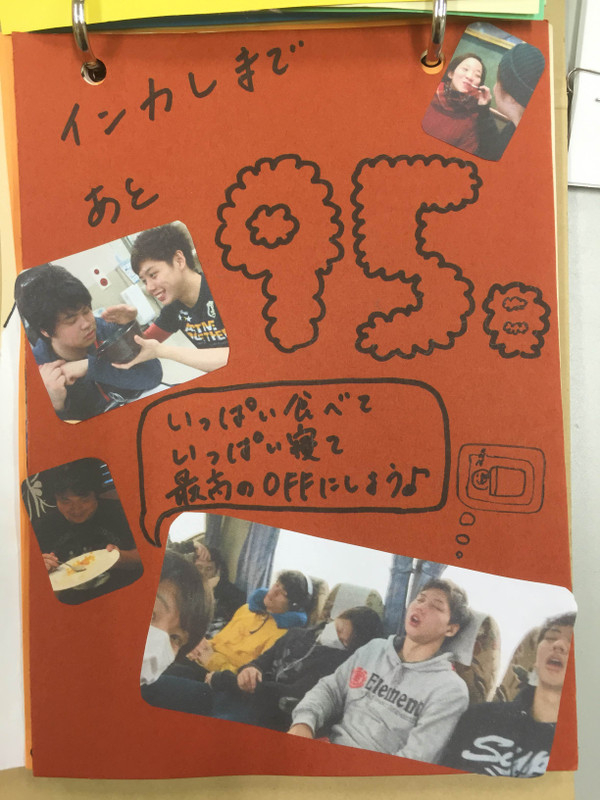 インカレまで
あと
95日
いっぱい食べて
いっぱい寝て
最高のOFFにしよう♪
Element